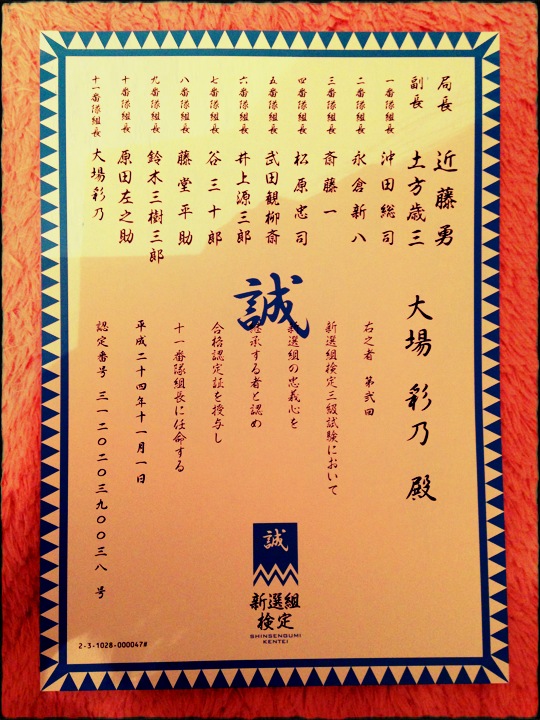 局長 近藤勇
副長 土方歳三
一番隊組長 沖田総司
二番隊組長 永倉新八
三番隊組長 斎藤一
四番隊組長 松原忠司
五番隊組長 武田観柳斎
六番隊組長 井上源三郎
七番隊組長 谷三十郎
八番隊組長 藤堂平助
九番隊組長 鈴木三樹三郎
十番隊組長 原田左之助
十一番隊組長 大場彩乃
大場 彩乃 殿
右之者 第弐回
新選組検定三級試験において
新選組の忠義心を
継承する者と認め
合格認定証を授与し
十一番隊組長に任命する
平成二十四年十一月一日
認定番号 三一二〇二〇三九〇〇三八 号
誠
誠
新選組
検定
SHINSENGUMI
KENTEI
2-3-1028-000047#